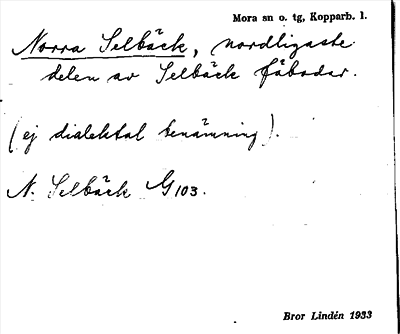 Mora sn o. tg, Kopparb. l.
Norra Selbäck, nordligaste
delen av Selbäck fäbodar.
(ej dialektal benämning).
N. Selbäck G103.
Bror Lindén 1933